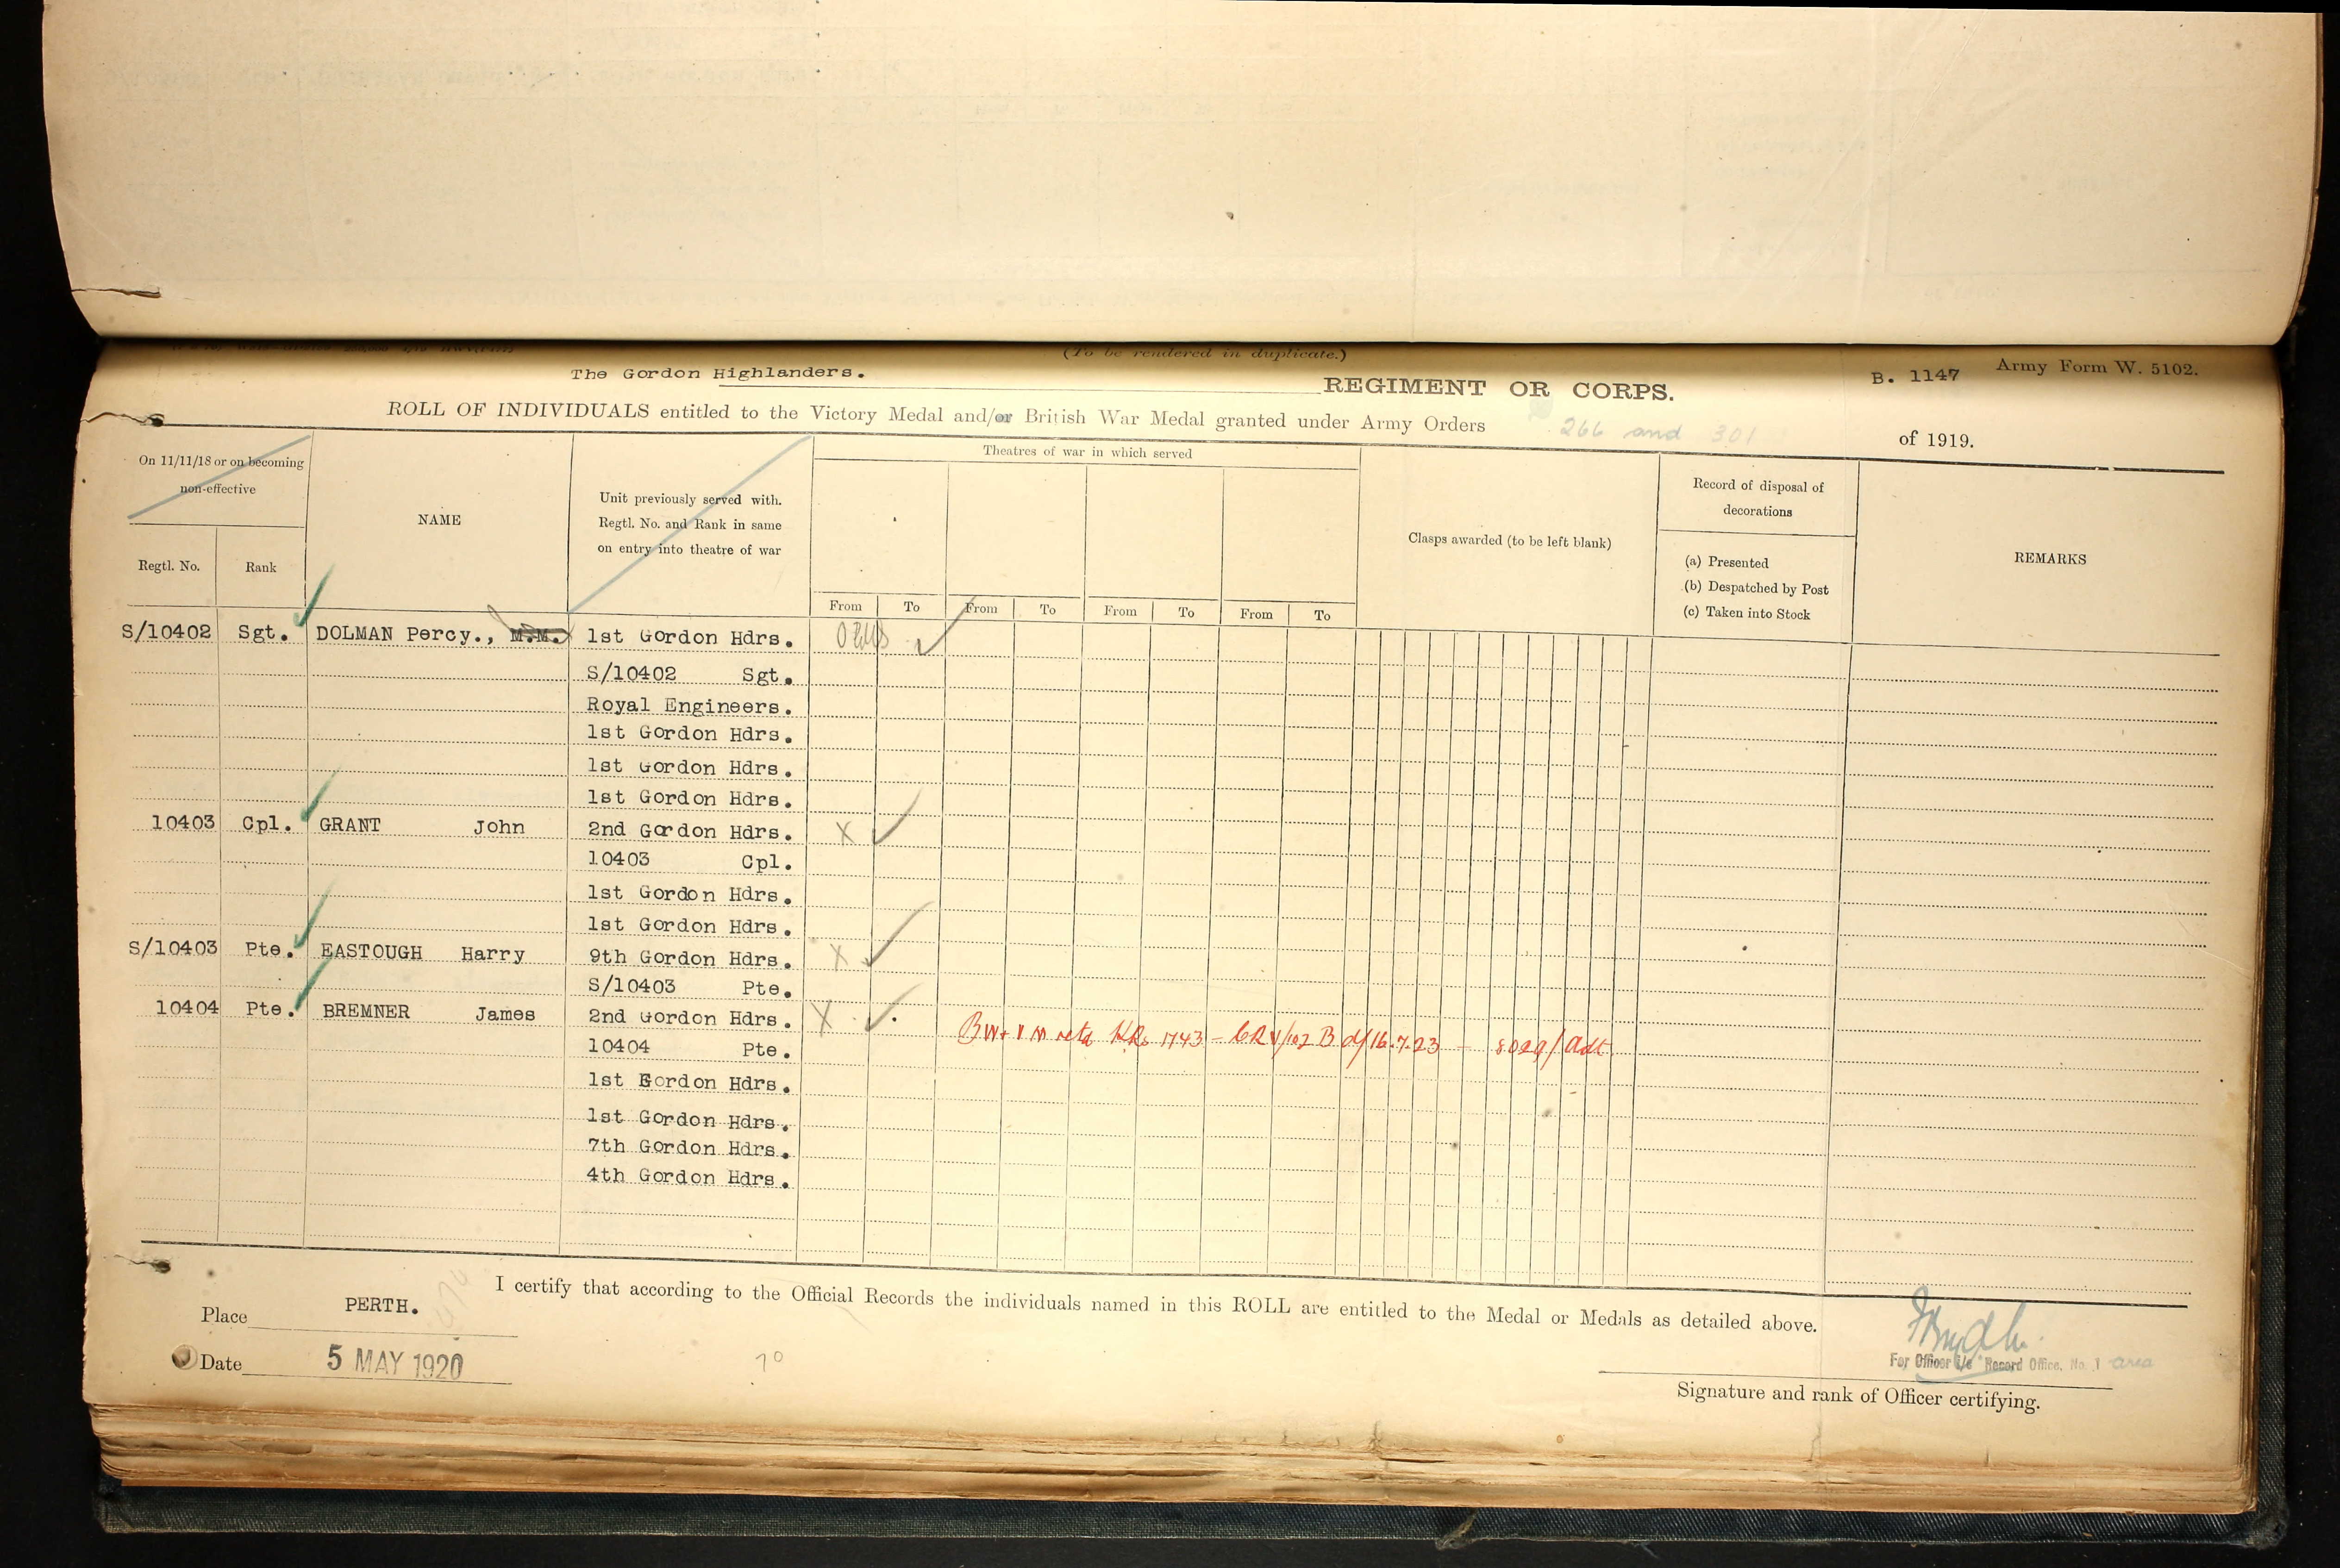 (To be rendered in duplicate.)
The Gordon Highlanders. REGIMENT OR CORPS. B. 1147 Army Form W. 5102.
ROLL OF INDIVIDUALS entitled to the Victory Medal and/or British War Medal granted under Army Orders 266 and 301 of 1919.
On 11/11/18 or on becoming
non-effective
Regtl. No.
Rank
NAME
Unit previously served with.
Regtl. No. and Rank in same
on entry into theatre of war
Theatres of war in which served
From To From To From To From To
Clasps awarded (to be left blank)
Record of disposal of
decorations
(a) Presented
(b) Despatched by Post
(c) Taken into Stock
REMARKS
S/10402 Sgt. DOLMAN Percy., M.M. 1st Gordon Hdrs.
S/10402 Sgt.
Royal Engineers.
1st Gordon Hdrs.
1st Gordon Hdrs.
1st Gordon Hdrs.
10403 Cpl. GRANT John 2nd Gordon Hdrs. X
10403 Cpl.
1st Gordon Hdrs.
1st Gordon Hdrs.
S/10403 Pte. EASTOUGH Harry 9th Gordon Hdrs. X
S/10403 Pte.
10404 Pte. BREMNER James 2nd Gordon Hdrs. X
10404 Pte. BW + VM retd KRs 1743 - d/16.7.23 - 8029/Adt
1st Gordon Hdrs.
1st Gordon Hdrs.
7th Gordon Hdrs.
4th Gordon Hdrs.
I certify that according to the Official Records the individuals named in this ROLL are entitled to the Medal or Medals as detailed above.
Place PERTH.
Date 5 MAY 1920
70
For Officer i/c Record Office, No. 1 area
Signature and rank of Officer certifying.